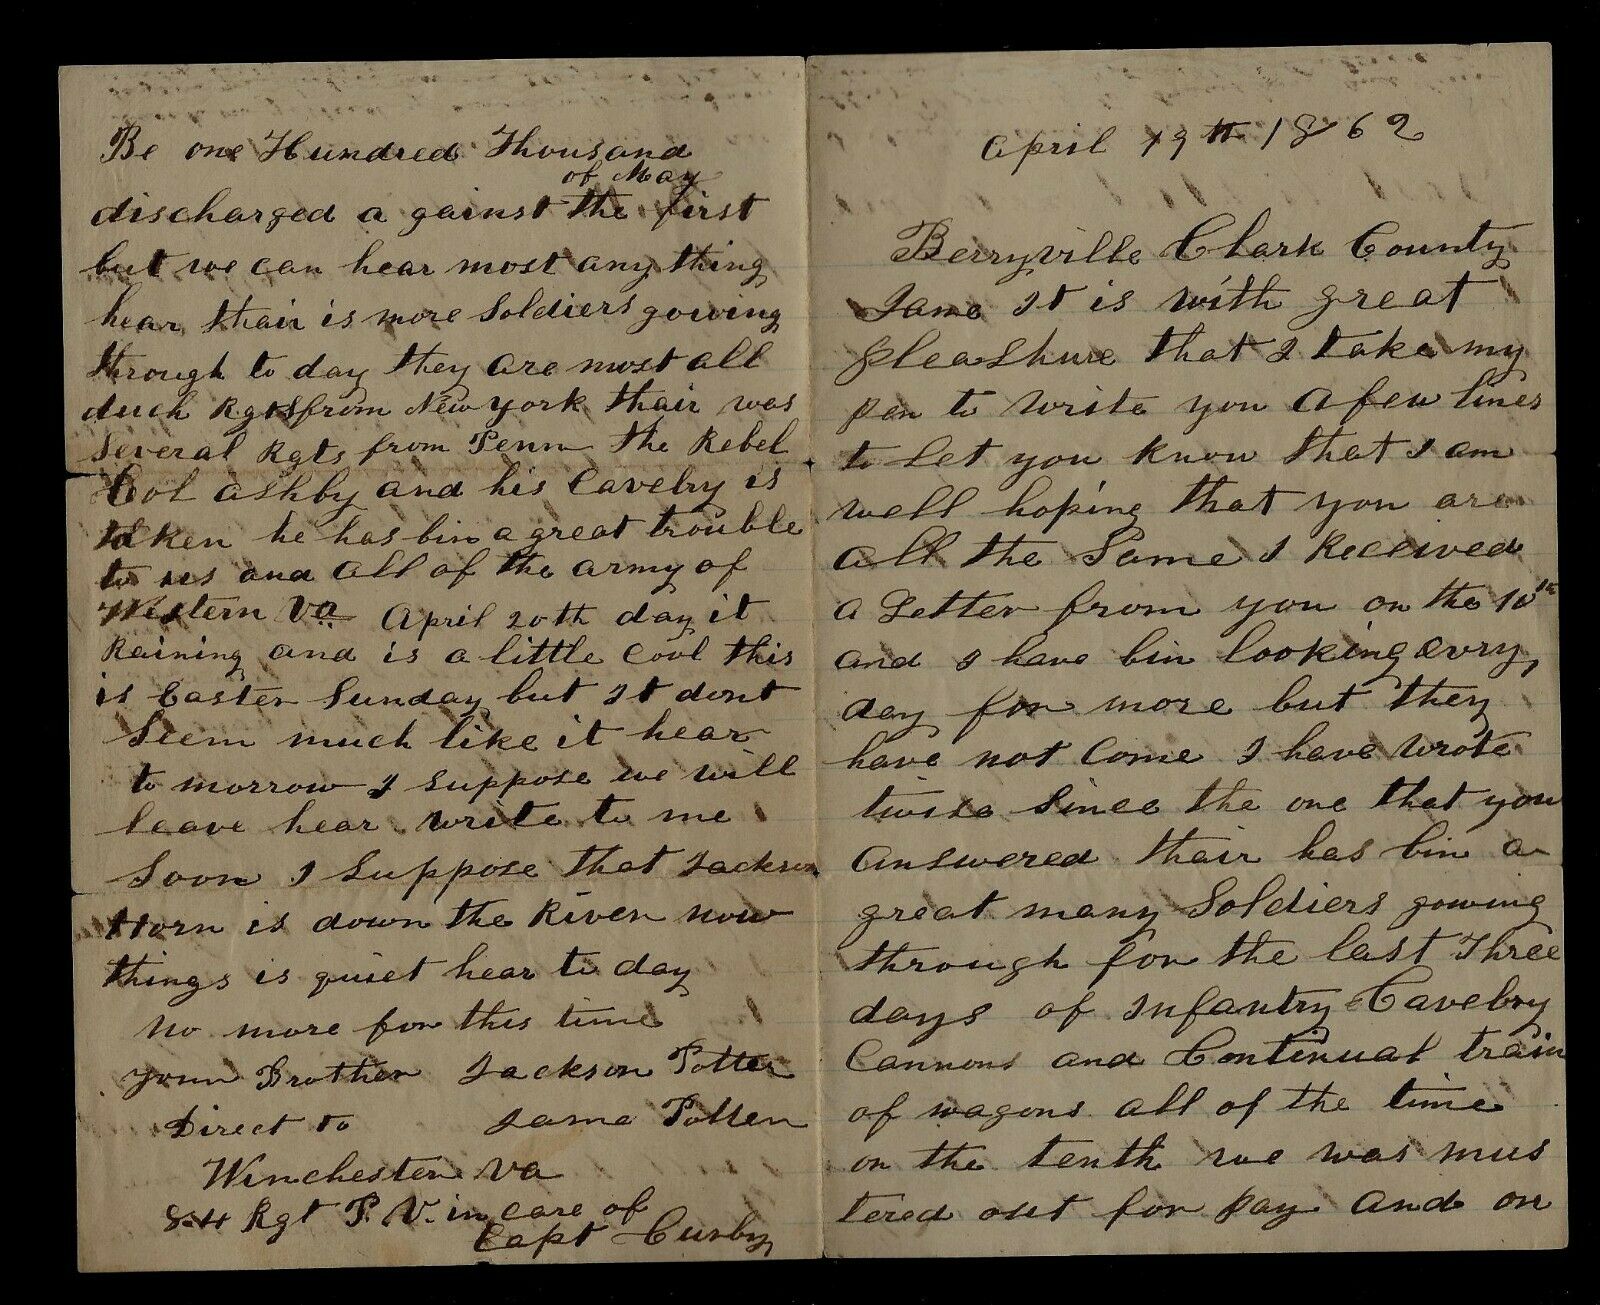 April 19th 1862
Berryville Clark County
Jane It is with great
pleashure that I take my
pen to write you a few lines
to let you know that I am
well hoping that you are
all the Same I Received
a Letter from you on the 10th
and I have bin looking evry
day for more but they
have not Come I have wrote
twise Since the one that you
answered thair has bin a
great many Soldiers gowing
through for the last Three
days of Infantry Cavelry
Cannons and Continual train
of wagons all of the time
on the tenth we was mus
tered out for pay and on
Be one Hundred Thousand
of May
discharged a gainst the first
but we can hear most any thing
hear thair is more Soldiers gowing
through to day they are most all
duch Rgts from New york thair was
Several Rgts from Penn the Rebel
Col ashby and his Cavelry is
taken he has bin a great trouble
to us and all of the army of
Western Va April 20th day it
Raining and is a little Cool this
is Easter Sunday but It dont
Seem much like it hear
to morrow I suppose we will
leave hear write to me
Soon I Suppose that Jackson
Horn is down the River now
things is quiet hear to day
no more for this time
your Brother Jackson Potter
Direct to Jane Potter
Winchester Va
Rgt P. V. in care of
Capt Curby